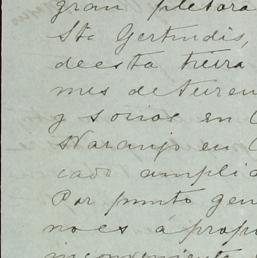 gran pletora
Sta Gertrudis,
de esta tierra
mes de turen
y socios en C
Naranjo en C
cado amplia
Por punto gen
no es á propo
inconveniente